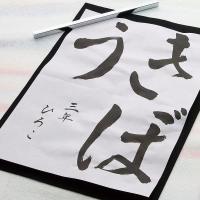 きぼ
う
三年 ひろこ